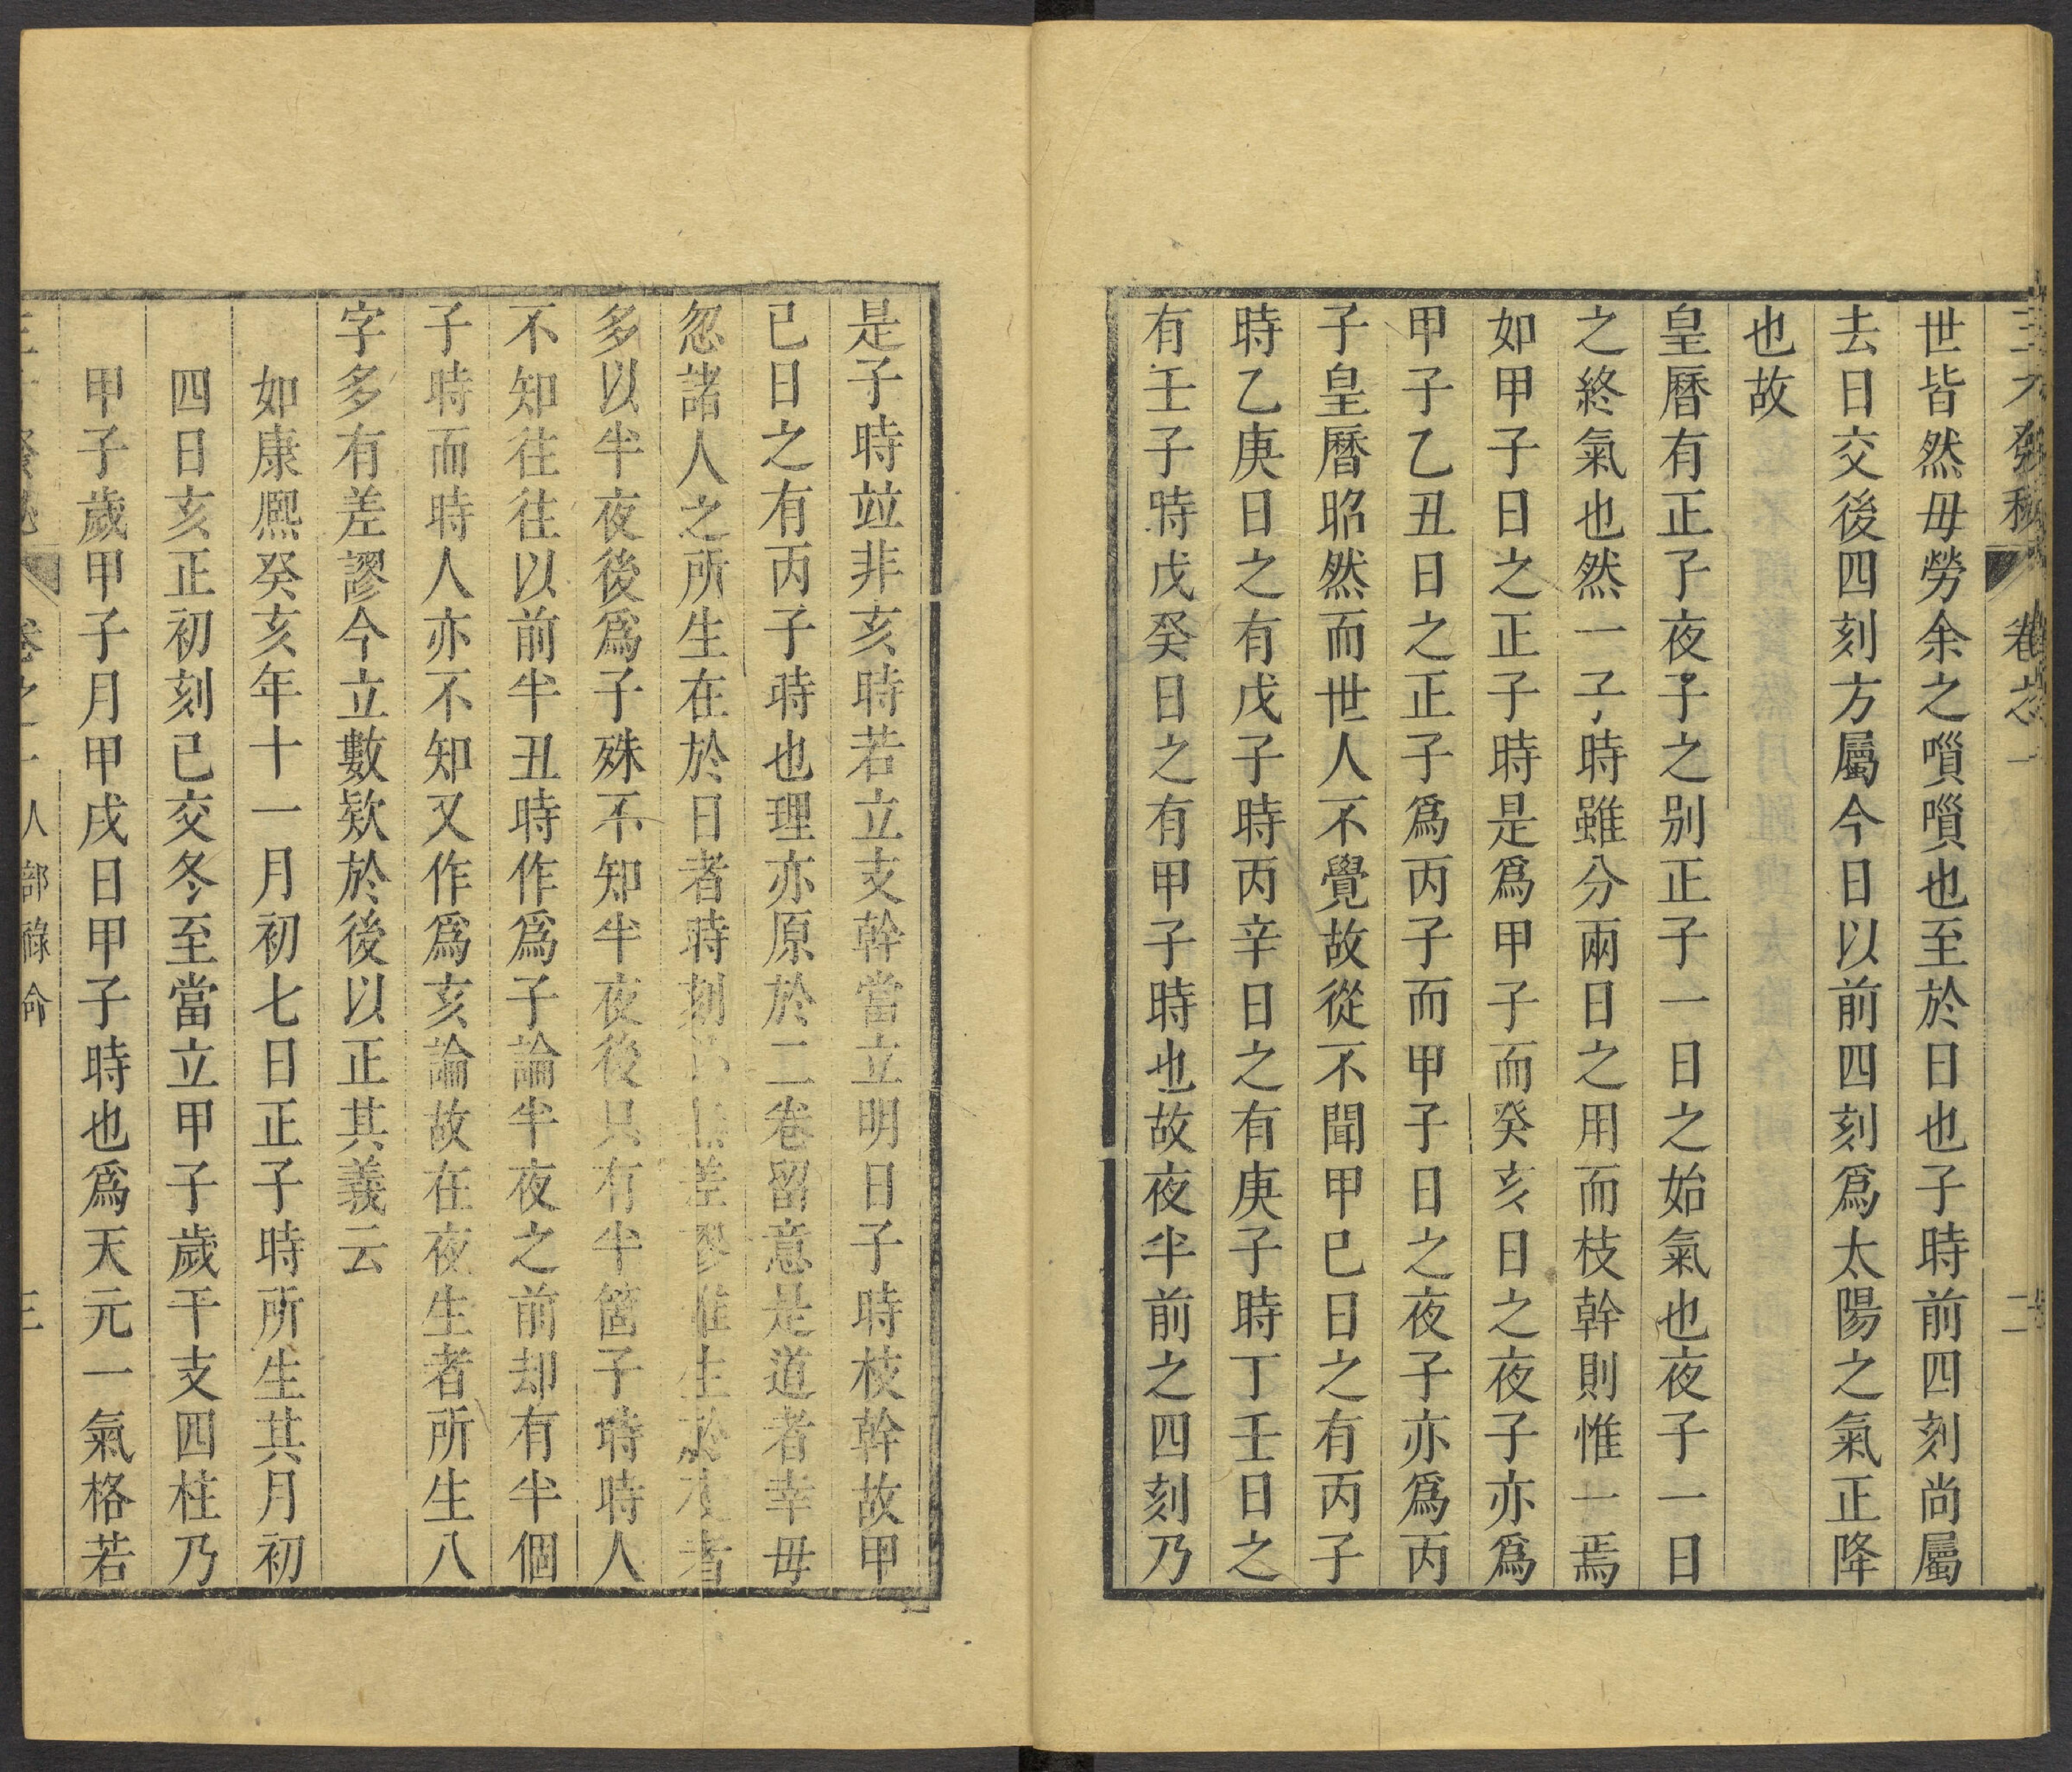 三才發秘 卷之一 二
世皆然毋勞余之嗩嗩也至於日也子時前四刻尚屬
去日交後四刻方屬今日以前四刻爲太陽之氣正降
也故
皇曆有正子夜子之别正子一日之始氣也夜子一日
之終氣也然一子時雖分兩日之用而枝幹則惟一焉
如甲子日之正子時是爲甲子而癸亥日之夜子亦爲
甲子乙丑日之正子爲丙子而甲子日之夜子亦爲丙
子皇曆昭然而世人不覺故從不聞甲巳日之有丙子
時乙庚日之有戊子時丙辛日之有庚子時丁壬日之
有壬子時戊癸日之有甲子時也故夜半前之四刻乃
是子時竝非亥時若立支幹當立明日子時枝幹故甲
已日之有丙子時也理亦原於二卷留意是道者幸毋
忽諸人之所生在於日者時刻差謬惟生於者
多以半夜後爲子殊不知半夜後只有半箇子時時人
不知往往以前半丑時作爲子論半夜之前却有半個
子時而時人亦不知又作爲亥論故在夜生者所生八
字多有差謬今立數欵於後以正其義云
如康熈癸亥年十一月初七日正子時所生其月初
四日亥正初刻已交冬至當立甲子歲干支四柱乃
甲子歲甲子月甲戌日甲子時也爲天元一氣格若
卷之一 人部祿命 三